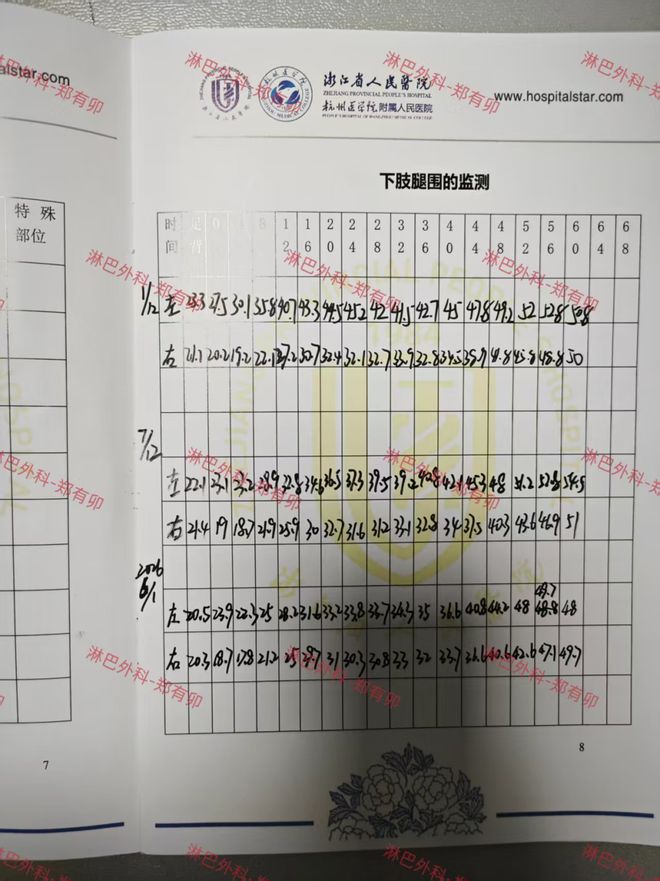 淋巴外科-郑有卯
alstar.com
浙江省人民医院
ZHEJIANG PROVINCIAL PEOPLE'S HOSPITAL
杭州医学院 附属人民医院
PEOPLE'S HOSPITAL OF HANGZHOU MEDICAL COLLEGE
www.hospitalstar.com
特殊部位
下肢腿围的监测
时间 足背 0 4 8 12 16 20 24 28 32 36 40 44 48 52 56 60 64 68
1/12 左 27.5 30.1 35.8 40.7 43.3 44.5 45.2 42 41.5 42.7 45 47.8 49.2 52 52.8
右 21.1 20.2 19.2 22.1 27.2 30.7 32.4 32.1 32.7 33.9 32.8 34.5 38.9 41.8 45.8 48.8 50
7/12
左 22.1 23.1 23.2 28.9 32.8 34.6 36.5 37.3 39.5 39.2 40.8 42.1 45.3 48 51.2 52.8 54.5
右 21.4 19 18.7 21.9 25.9 30 32.7 31.6 31.2 33.1 32.8 34 37.5 40.3 43.6 46.9 51
2026
6/1
49.7
左 20.5 23.9 22.3 25 28.2 31.6 33.2 33.8 33.7 34.3 35 36.6 40.8 44.2 48 48.8 48
右 20.3 18.7 17.8 21.2 25 29.7 31 30.3 30.8 33 32 33.7 36.6 40.6 42.6 47.1 49.7
7
8